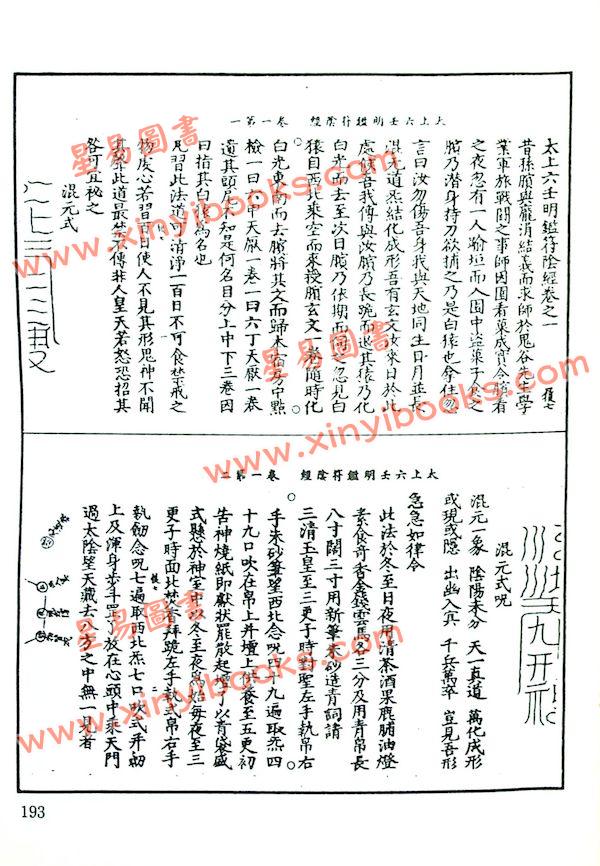 太上六壬明鑑符陰經 卷一第一
太上六壬明鑑符陰經卷之一
昔孫臏與龐涓結義而求師於鬼谷先生學
業軍旅戰鬪之事師因園看菓成實令臏看
之夜忽有一人踰垣而入園中盜菓子食之
臏乃潛身持刀欲捕之乃是白猿也拿住忽
言曰汝勿傷吾身我與天地同生日月並長
混元道炁結化成形吾有玄文汝來日於此
處候吾我傳與汝臏乃長跪而退其猿乃化
白光而去至次日臏乃依期而同之忽見白
猿自西北乘空而來授臏玄文一卷隨時化
白光東南而去臏將其文而歸本宿房中點
檢一曰六甲天厭一卷一曰六丁天厭一卷
遺其頭尾不知是何名目分上中下三卷因
曰指其白猿為名也
凡習此法道可清淨一百日不可食禁戒之
物虔心若習百日使人不見其形鬼神不聞
其聲此道最禁不傳非人皇天若怒恐招其
咎可宜秘之
混元式
太上六壬明鑑符陰經 卷一第二
混元式呪
混元一象 陰陽未分 天一真道 萬化成形
或現或隱 出幽入冥 千兵萬卒 豈見吾形
急急如律令
此法於冬至日夜用清茶酒果鹿脯油燈
素食奇香金錢雲馬各三分及用青帛長
八寸闊三寸用新筆朱砂造青詞請
三清玉皇至三更子時對聖左手執帛右
手朱砂筆望西北念呪四十九遍取炁四
十九口吹在帛上并壇上供養至五更初
苦神燒紙即獻狀罷散起壇了以青袋盛
式懸於神室中以冬至夜為始每夜至三
更子時面北焚香拜跪左手執式帛右手
執劍念呪七遍取西北炁七口吹式并劍
上及渾身步斗罡了放在心頭中乘天門
過太陰望天藏去八方之中無一見者
193
星易圖書
www.xinyibooks.com
星易圖書
www.xinyibooks.com
星易圖書
www.xinyibooks.com
星易圖書
www.xinyibooks.com